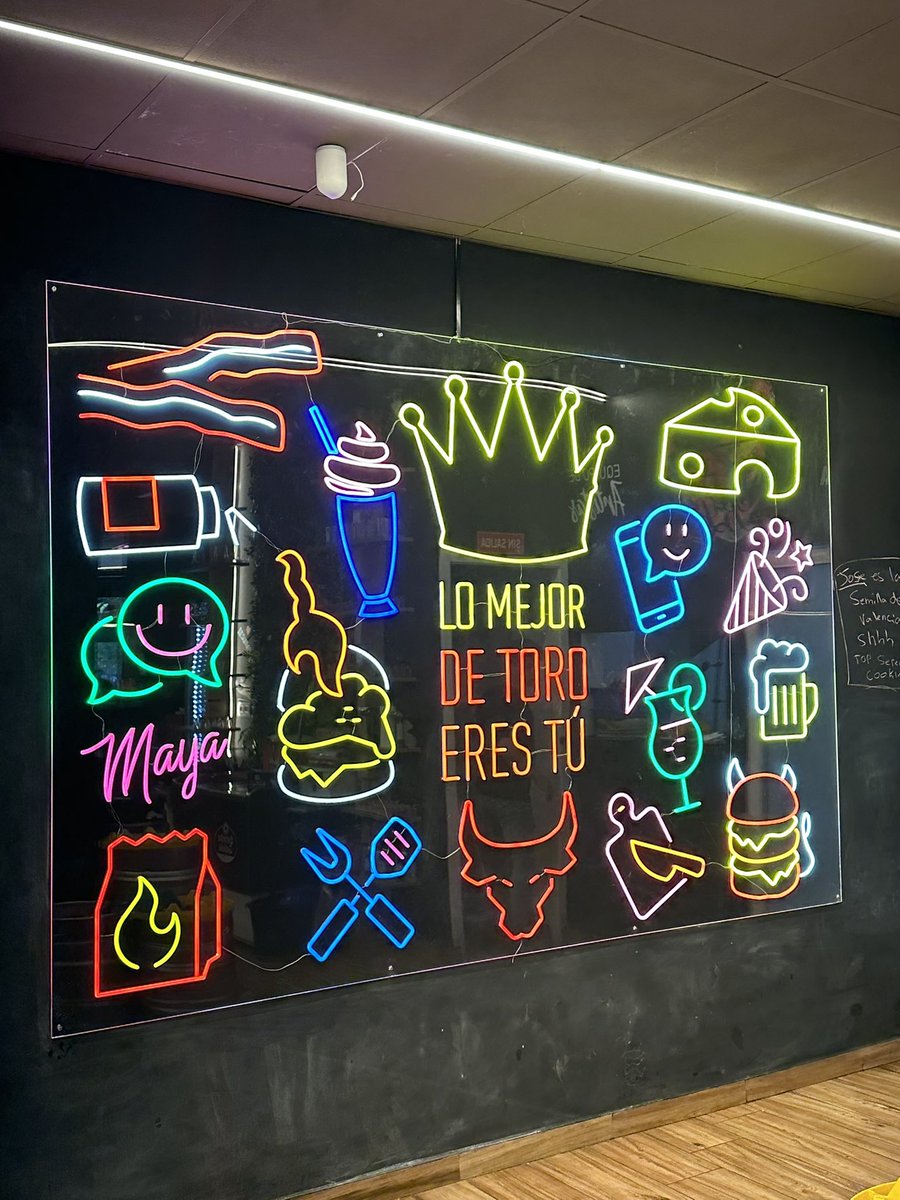 LO MEJOR
DE TORO
ERES TÚ
Maya
SIN SALIDA
EQUIPO DE
Jose es la
Semilla de
Valencia
Shhh
TOP Secre
Cookin